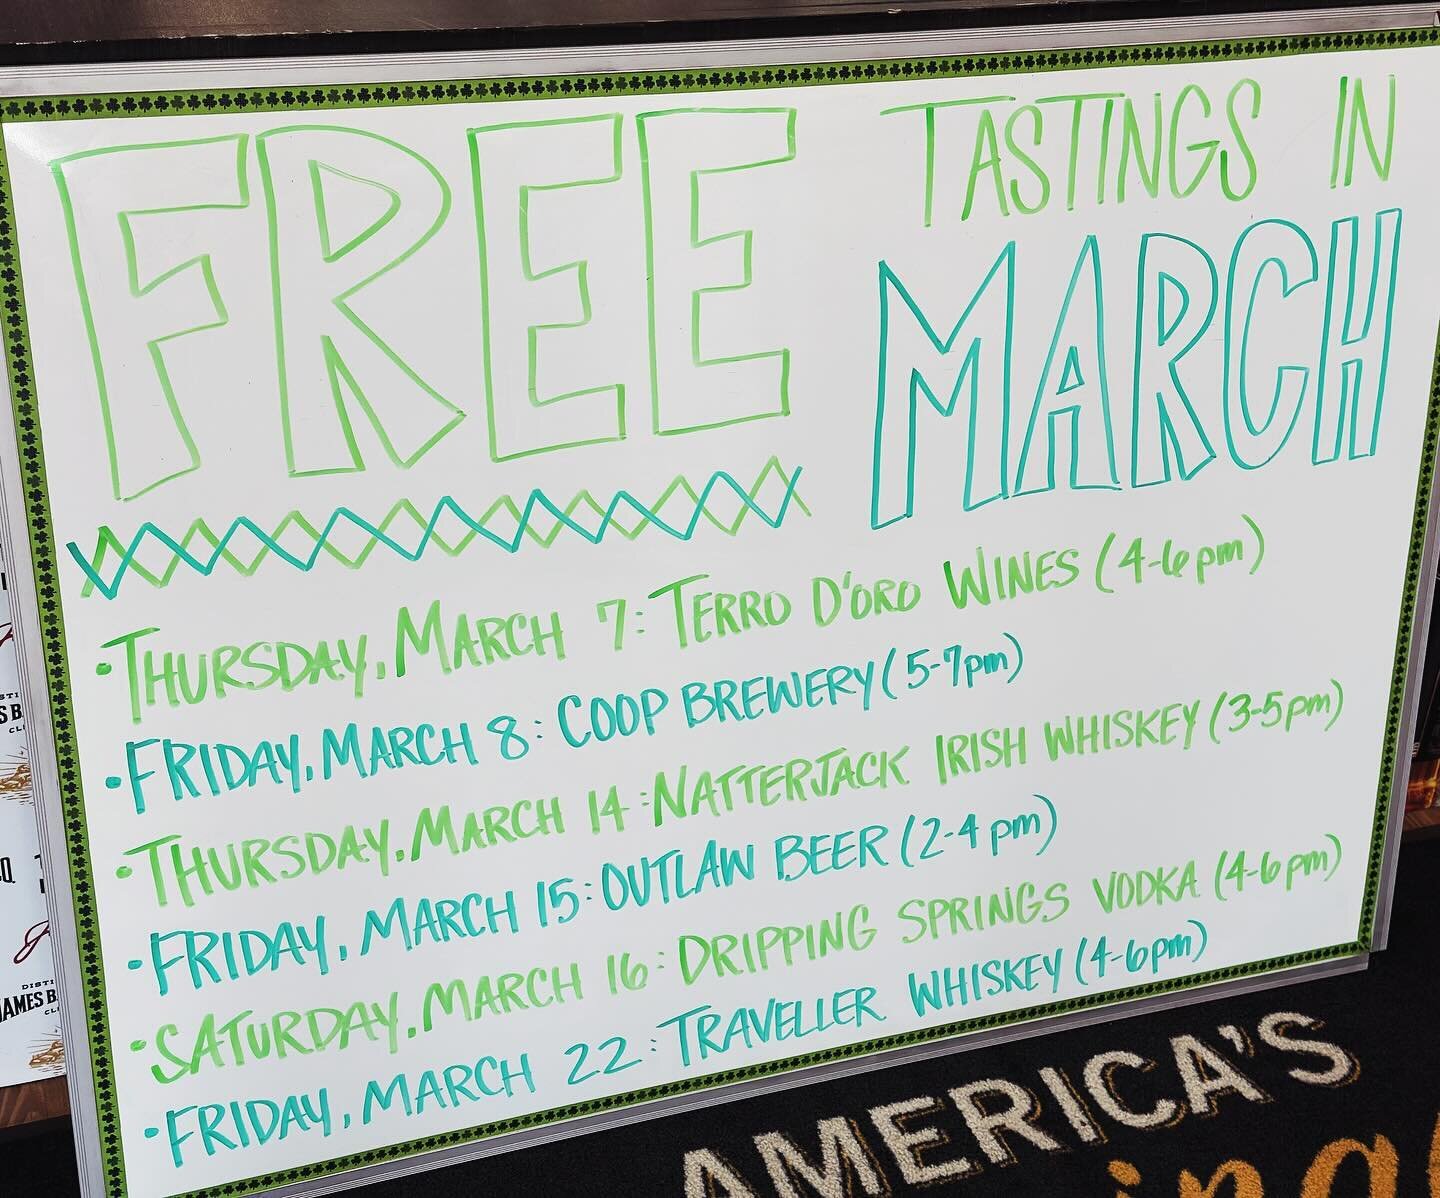 FREE
TASTINGS IN
MARCH
• THURSDAY, MARCH 7: TERRO D'ORO WINES (4-6pm)
• FRIDAY, MARCH 8: COOP BREWERY (5-7pm)
• THURSDAY, MARCH 14: NATTERJACK IRISH WHISKEY (3-5pm)
• FRIDAY, MARCH 15: OUTLAW BEER (2-4pm)
• SATURDAY, MARCH 16: DRIPPING SPRINGS VODKA (4-6pm)
• FRIDAY, MARCH 22: TRAVELLER WHISKEY (4-6pm)
AMERICA'S